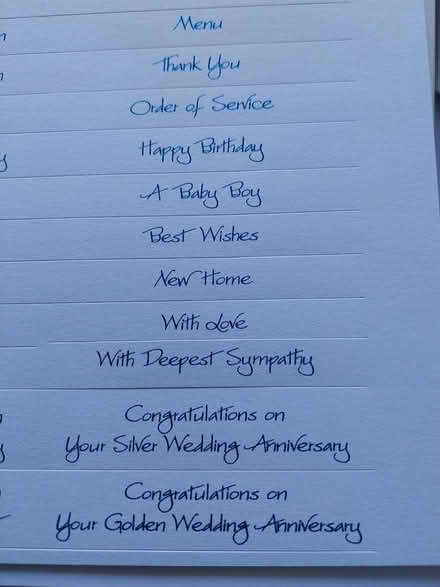 Menu
Thank You
Order of Service
Happy Birthday
A Baby Boy
Best Wishes
New Home
With Love
With Deepest Sympathy
Congratulations on
Your Silver Wedding Anniversary
Congratulations on
Your Golden Wedding Anniversary